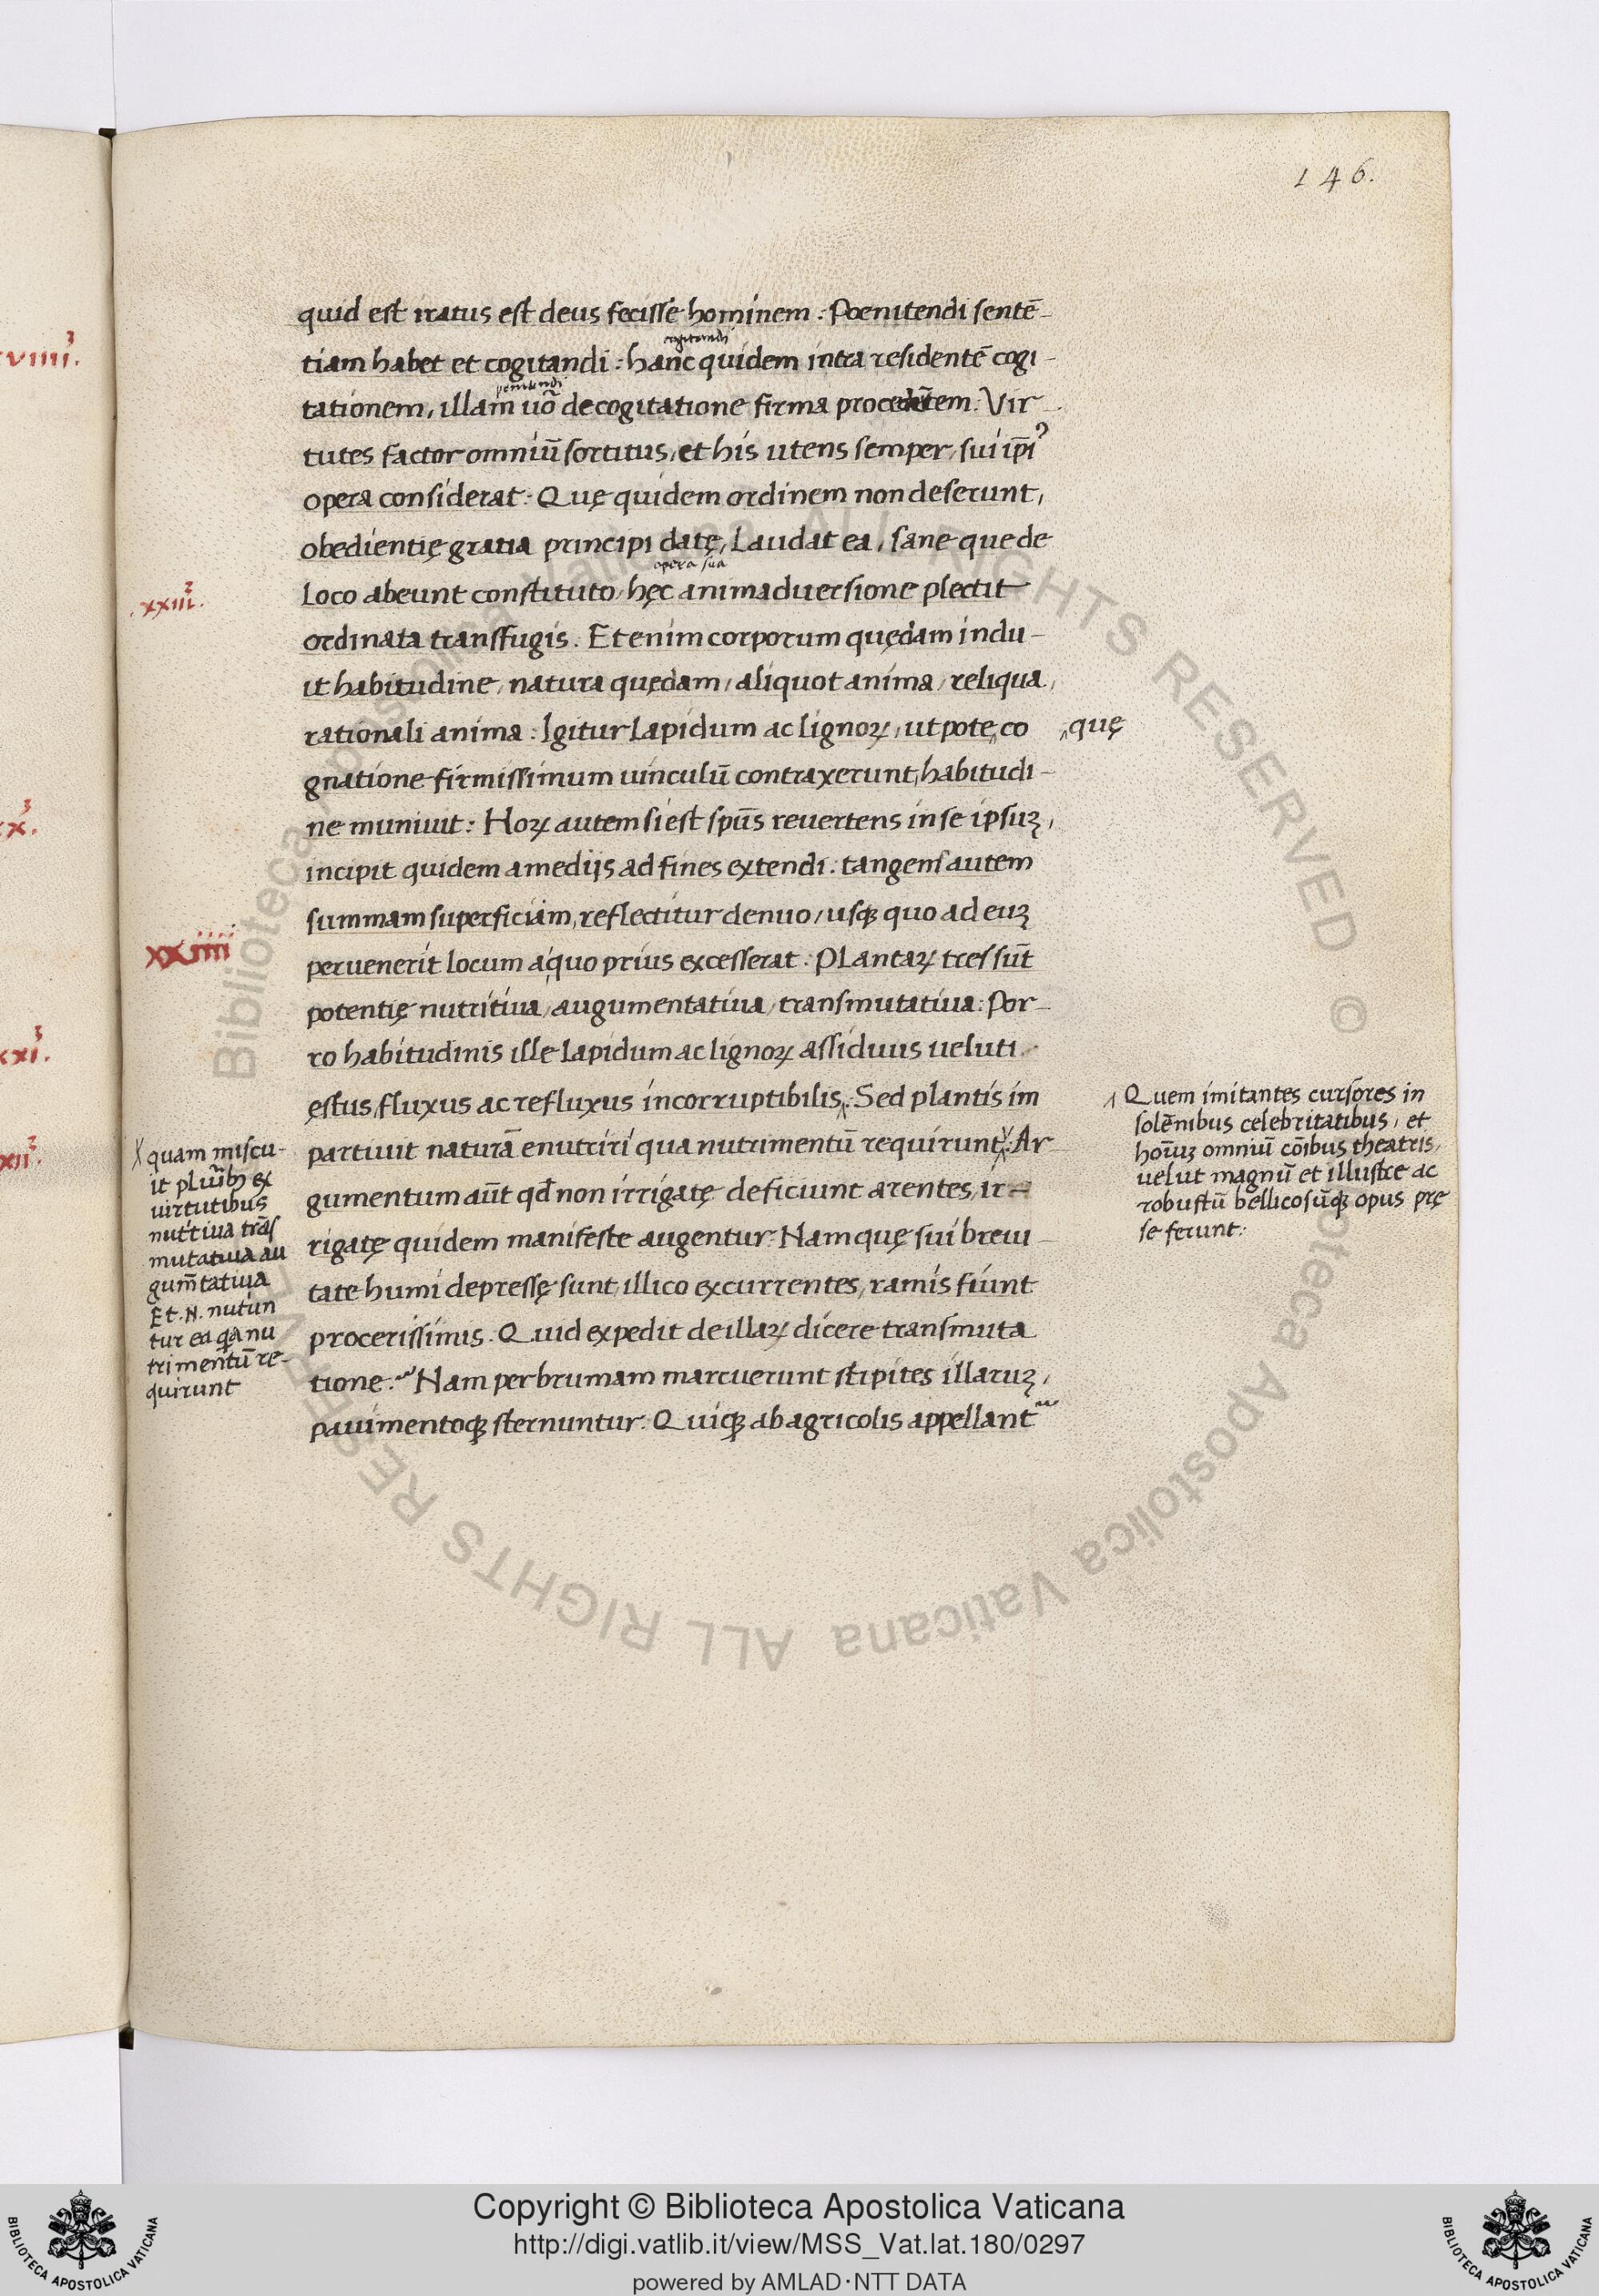 146.
quid est iratus est deus fecisse hominem : Poenitendi sentē-
cogitandi
tiam habet et cogitandi : hanc quidem intra residentē cogi-
penitendi
tationem, illam uō de cogitatione firma procedētem. Vir-
tutes factor omniū sortitus, et his utens semper, sui ip̄i
opera considerat. Quę quidem ordinem non deserunt,
obedientię gratia principi datę, Laudat ea, sane que de
opera sua
Loco abeunt constituto, hęc animaduersione plectit
ordinata transfugis. Etenim corporum quędam indu-
it habitudine, natura quędam, aliquot anima, reliqua,
rationali anima. Igitur Lapidum ac lignoꝝ, ut pote ‸ co
‸quę
gnatione firmissimum uinculū contraxerunt, habitudi-
ne muniuit : Hoꝝ autem si est sp̄us reuertens in se ipsuꝫ,
incipit quidem a medijs ad fines extendi : tangens autem
summam superficiam, reflectitur denuo, usqꝫ quo ad euꝫ
peruenerit locum a quo prius excesserat. PLantaꝝ tres sūt
potentię nutritiua, augumentatiua, transmutatiua : Por-
ro habitudinis ille Lapidum ac lignoꝝ assiduus ueluti
ęstus, fluxus ac refluxus incorruptibilis‸. Sed plantis im
partiuit naturā enutriri qua nutrimentū requirunt. Ar-
gumentum aūt qđ non irrigatę deficiunt arentes, ir-
rigatę quidem manifeste augentur. Nam quę sui breui-
tate humi depressę sunt, illico excurrentes, ramis fiunt
procerissimis. Quid expedit de illaꝝ dicere transmuta
tione. Nam per brumam marcuerunt stipites illaruꝫ,
pauimentoqꝫ sternuntur. Quiqꝫ ab agricolis appellant
‸ Quem imitantes cursores in
solēnibus celebritatibus, et
hoīuꝫ omniū cōibus theatris,
uelut magnū et illustre ac
robustū bellicosūqꝫ opus prę
se ferunt.
quam miscu-
it plurib; ex
uirtutibus
nut̄tiua trās
mutatiua au
gum̄tatiua
Et .N. nutiun
tur ea qa nu
trimentū re-
quirunt
.xxiii.
xxiiii
viiii.
x.
xxi.
xii.
Biblioteca Apostolica Vaticana ALL RIGHTS RESERVED ©
Biblioteca Apostolica Vaticana ALL RIGHTS RESERVED
Copyright © Biblioteca Apostolica Vaticana
http://digi.vatlib.it/view/MSS_Vat.lat.180/0297
powered by AMLAD·NTT DATA
BIBLIOTECA APOSTOLICA VATICANA
BIBLIOTECA APOSTOLICA VATICANA